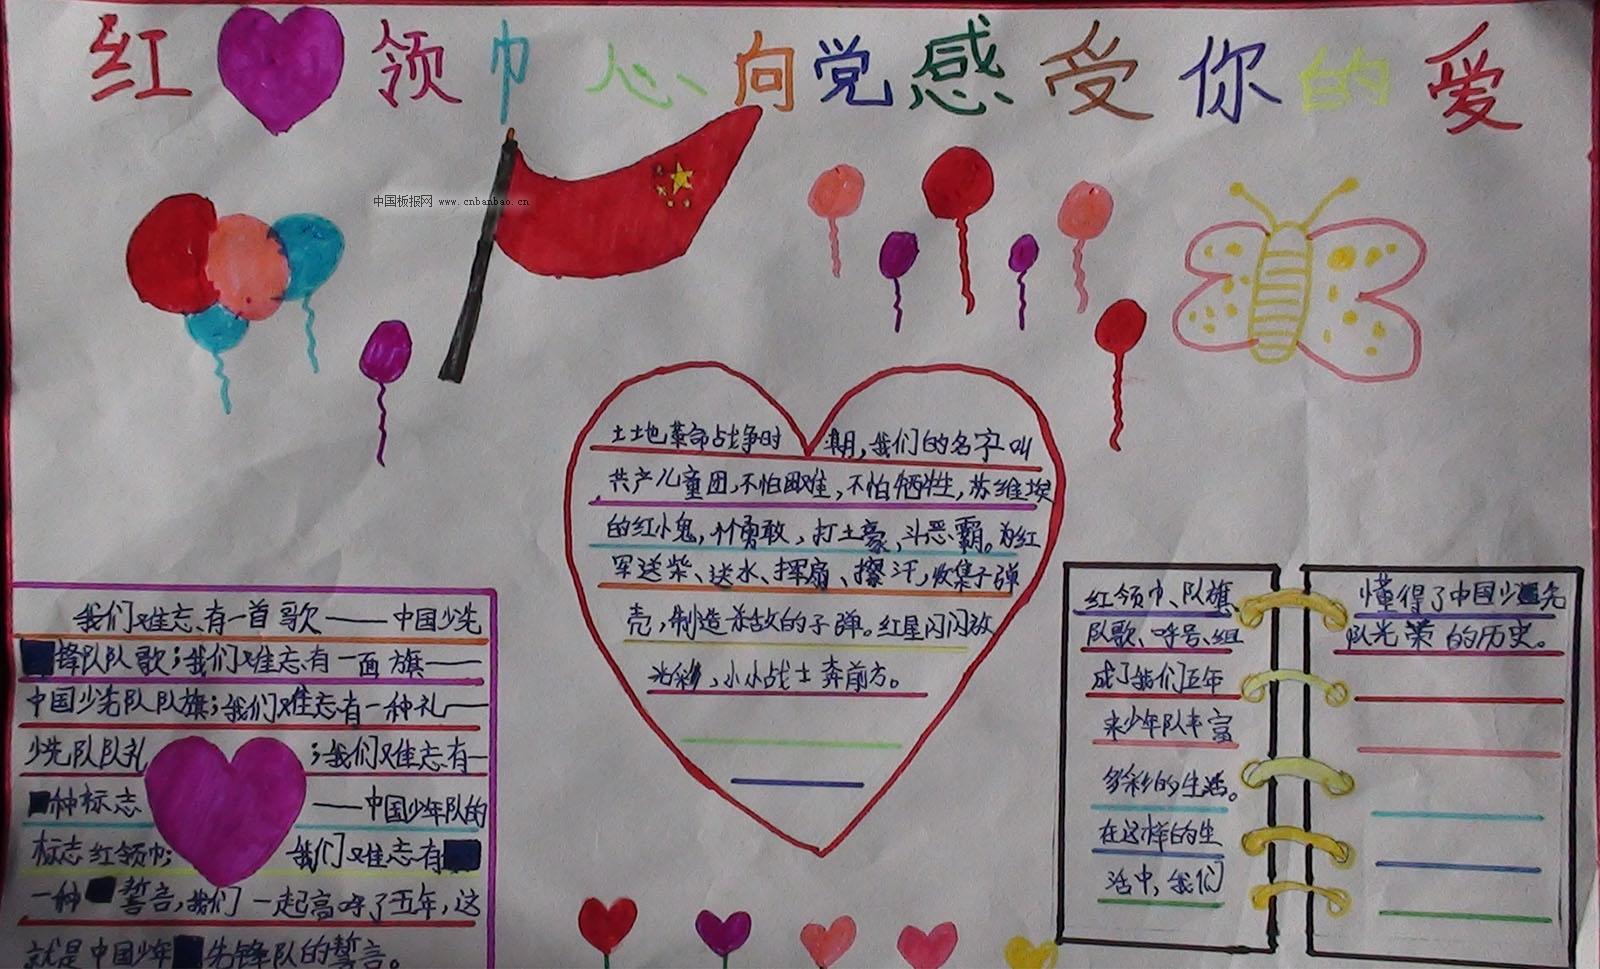 红领巾心向党感受你的爱
中国板报网 www.cnbanbao.cn
土地革命战争时期,我们的名字叫
共产儿童团,不怕困难,不怕牺牲,苏维埃
的红小鬼,个个勇敢,打土豪、斗恶霸。为红
军送柴、送水、挥扇、擦汗,收集子弹
壳,制造杀敌的子弹。红星闪闪放
光彩,小小战士奔前方。
我们难忘、有一首歌——中国少先
锋队队歌;我们难忘、有一面旗——
中国少先队队旗;我们难忘有一种礼——
少先队队礼;我们难忘有一
种标志——中国少年队的
标志红领巾;我们难忘有
一种誓言,我们一起高呼了五年,这
就是中国少年先锋队的誓言。
红领巾、队旗、
队歌、呼号、组
成了我们五年
来少年队丰富
多彩的生活。
在这样的生
活中,我们
懂得了中国少先
队光荣的历史。